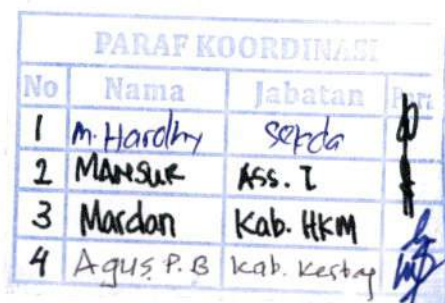 PARAF KOORDINASI
No Nama Jabatan Para
1 M. Hardhy Sekda
2 MANSUR ASS. I
3 Mardan Kab. HKM
4 Agus P.B Kab. Kesbag